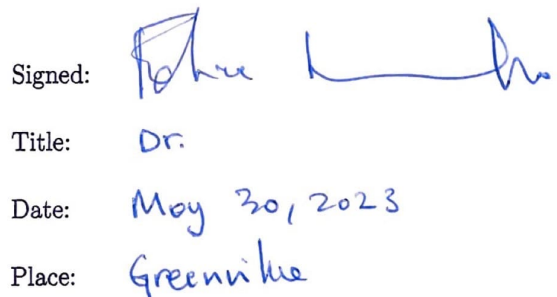 Signed:
Title: Dr.
Date: May 30, 2023
Place: Greenville